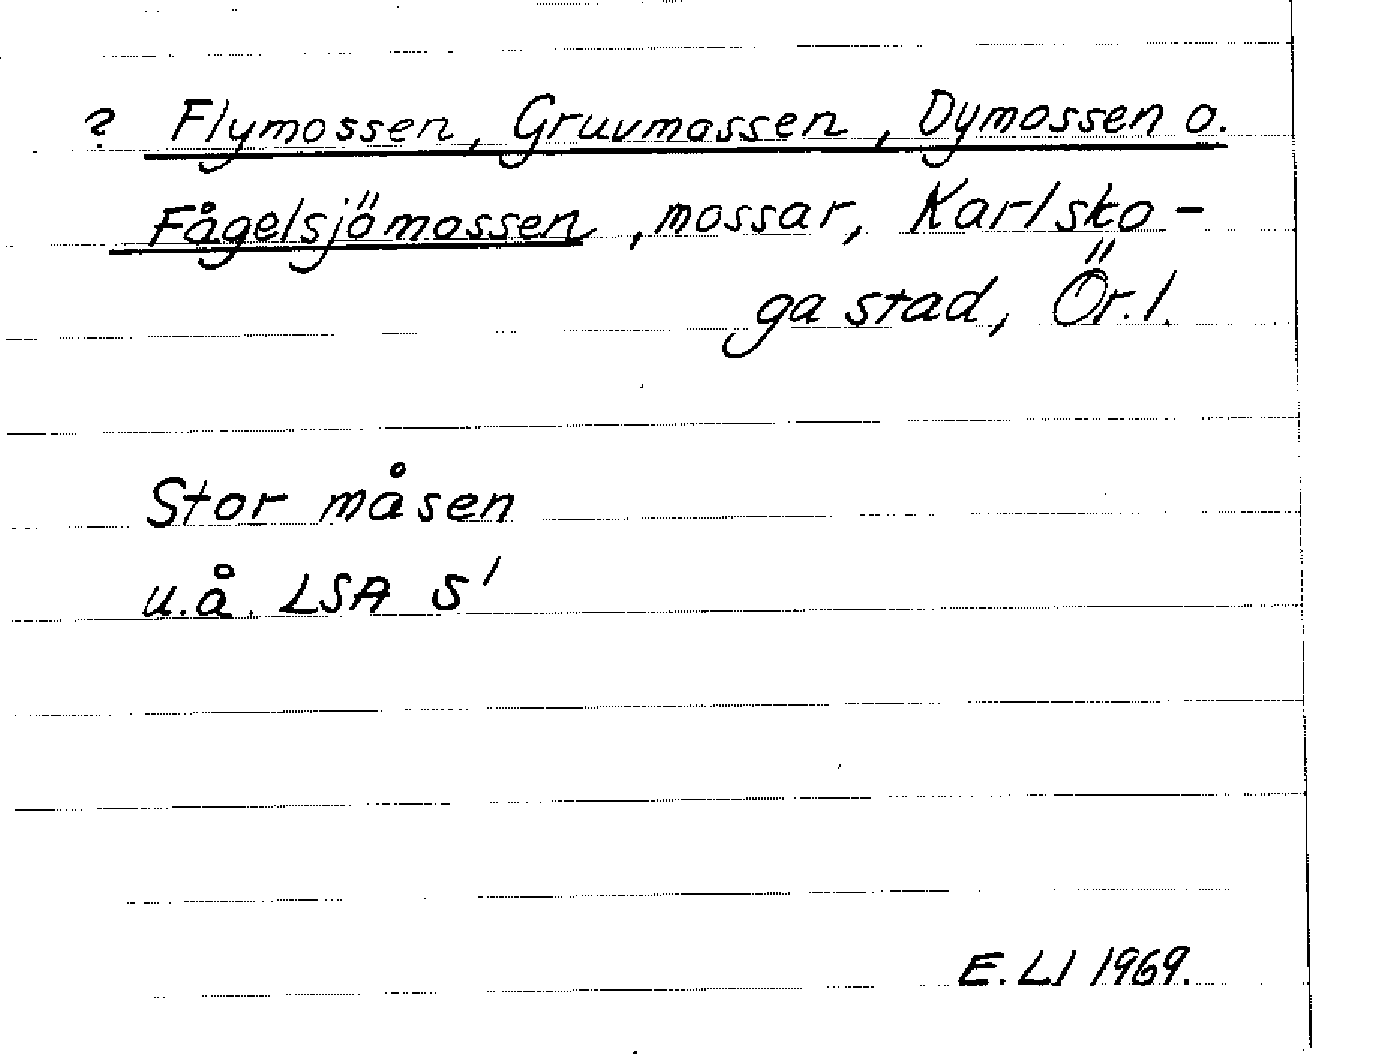 ? Flymossen, Gruvmossen, Dymossen o.
Fågelsjömossen, mossar, Karlsko-
ga stad, Ör.l.
Stor måsen
u.å. LSA S'
E.Ll 1969.